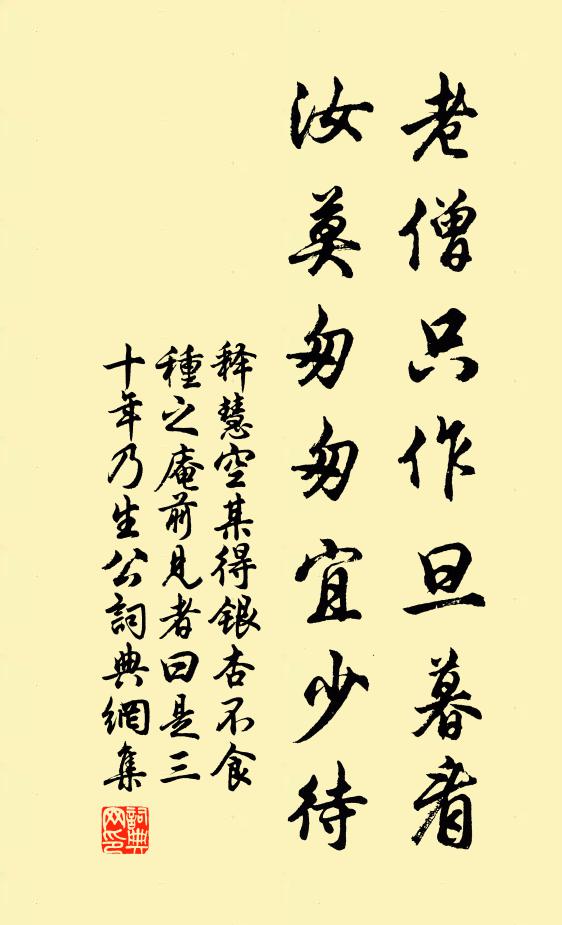 老僧只作旦暮看
汝莫匆匆宜少待
释慧空某得银杏不食
種之庵前见者曰是三
十年乃生公詞典網集
詞典网印